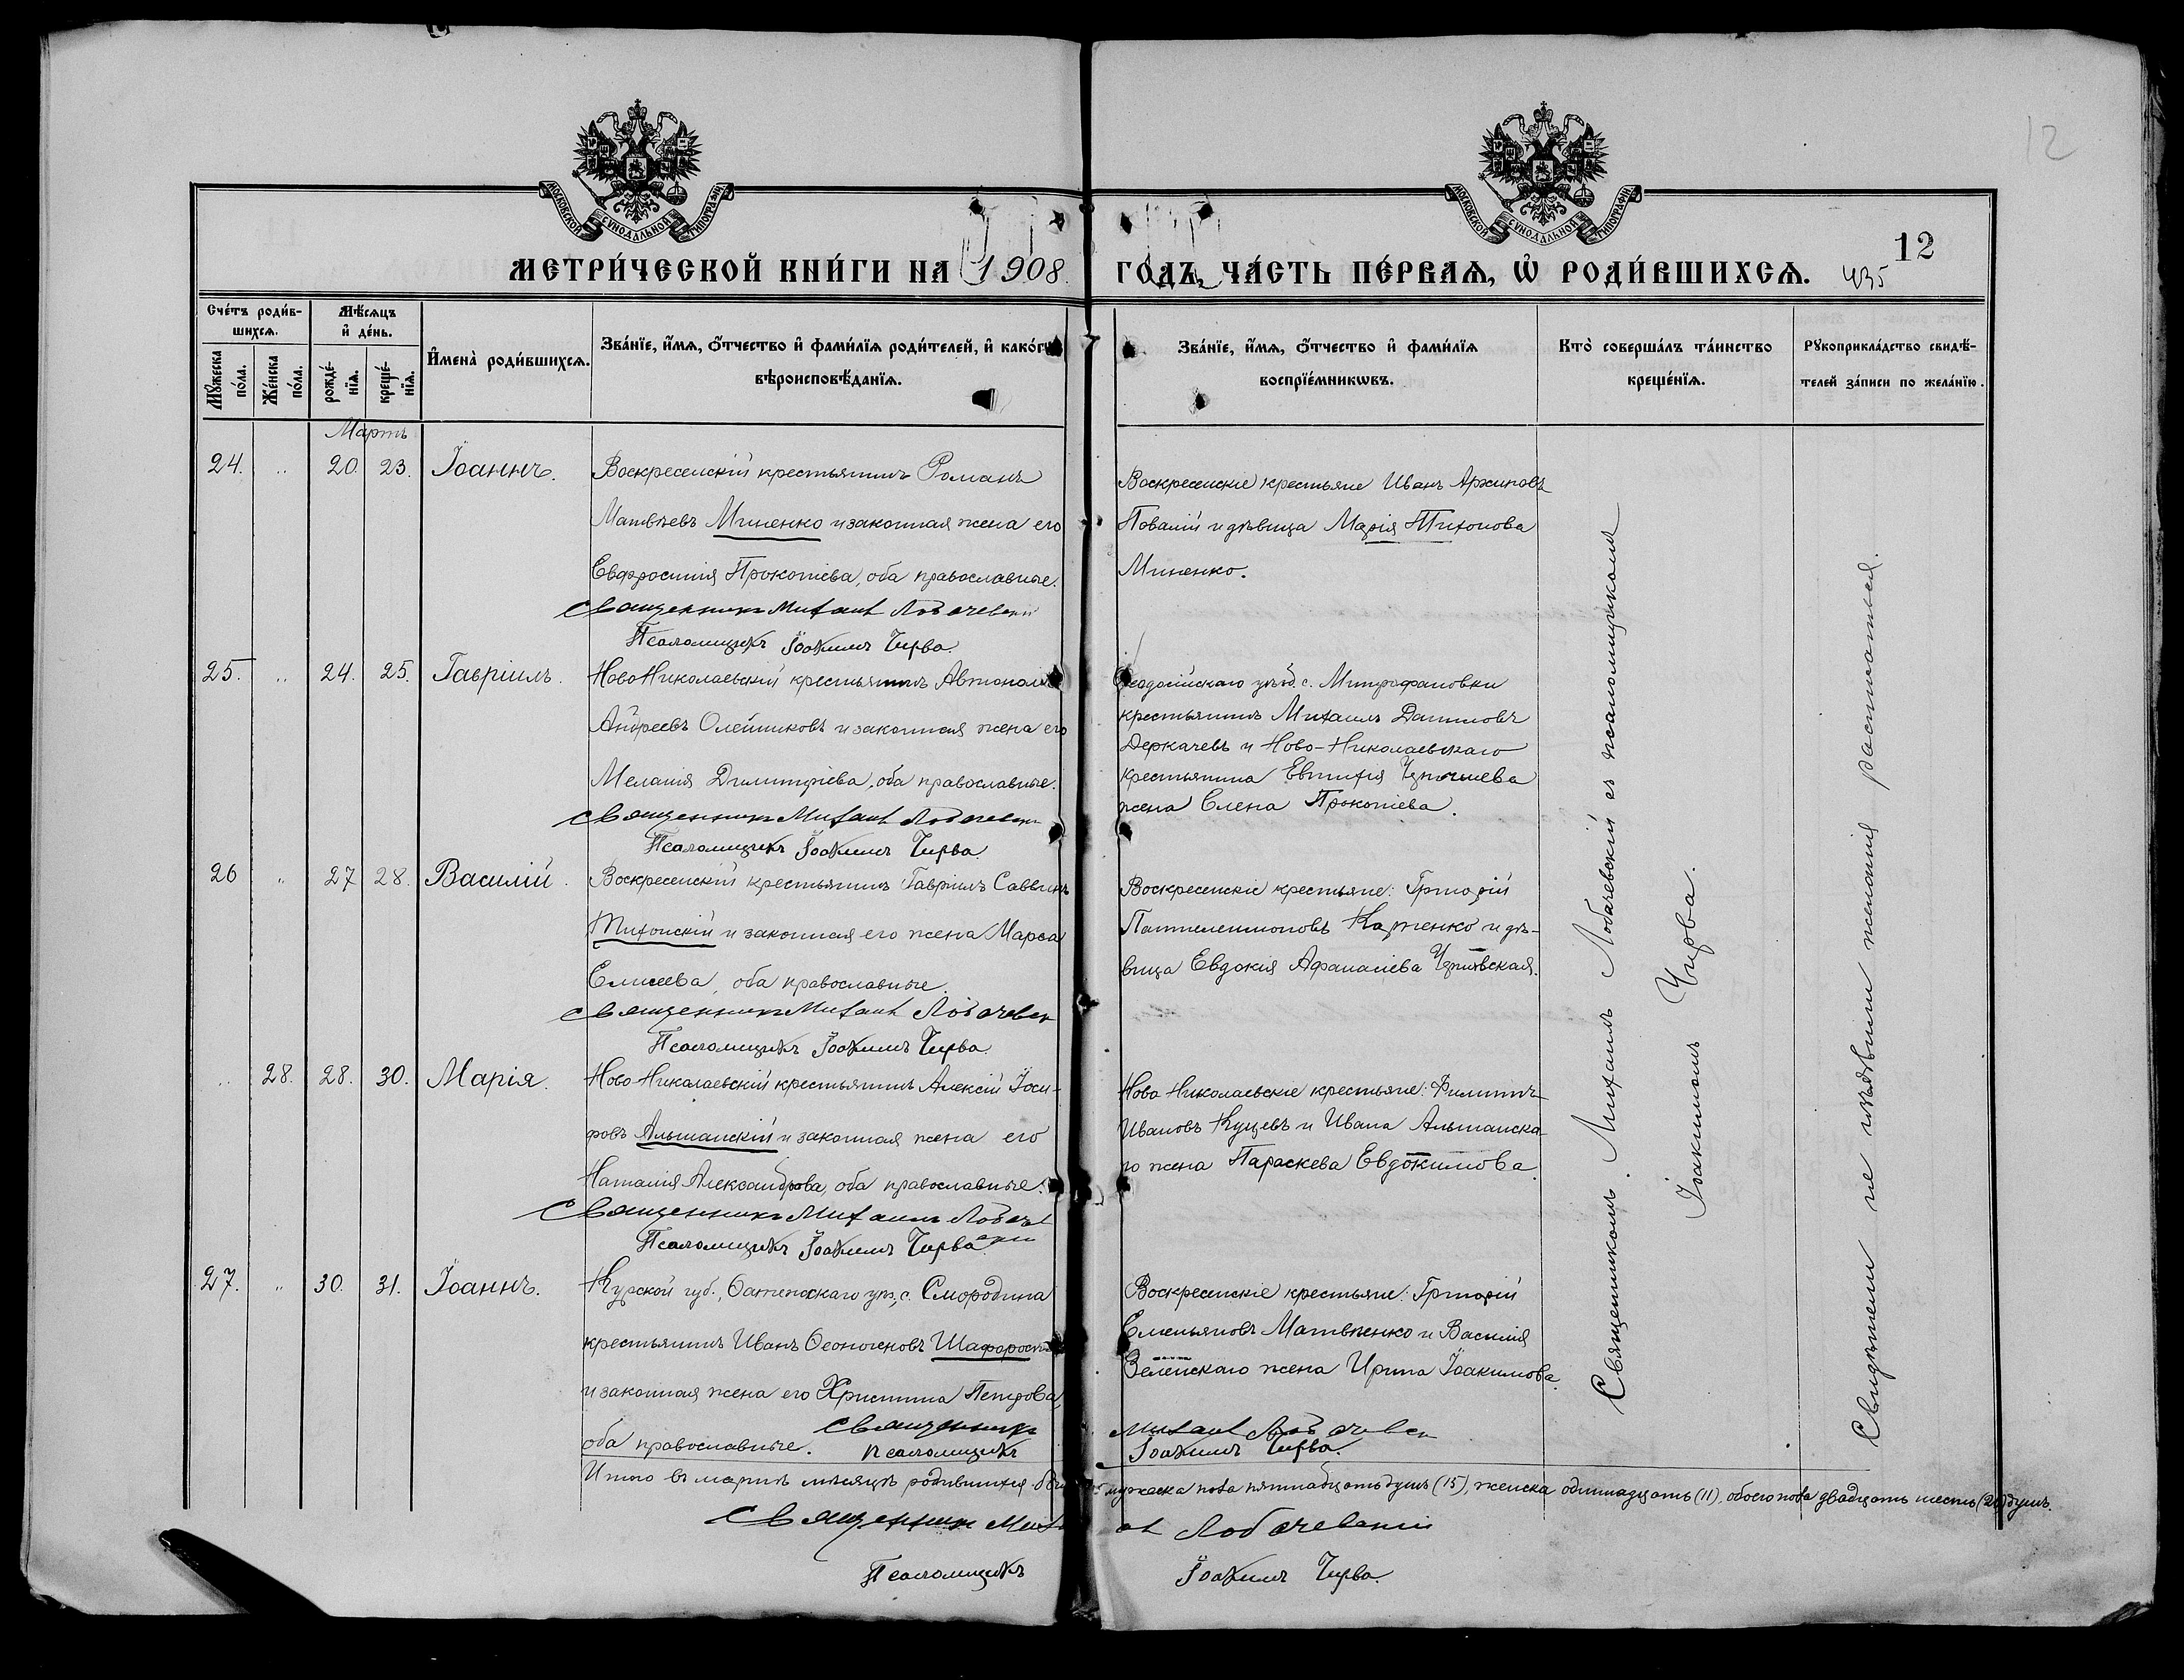 12
МОСКОВСКОЙ СѴНОДАЛЬНОЙ ТИПОГРАФІИ
МОСКОВСКОЙ СѴНОДАЛЬНОЙ ТИПОГРАФІИ
МЕТРИ́ЧЕСКОЙ КНИ́ГИ НА 1908 ГОДЪ, ЧА́СТЬ ПЕ́РВАѦ, Ѡ҆ РОДИ́ВШИХСѦ.
435
12
Сче́тъ роди́в-
шихсѧ.
Мꙋ́жеска по́ла.
Же́нска по́ла.
Мѣ́сѧцъ
и҆ де́нь.
рожде́-нїѧ.
креще́-нїѧ.
И҆мена̀ роди́вшихсѧ.
Зва́нїе, и҆́мѧ, ѻ҆́тчество и҆ фами́лїѧ роди́телей, и҆ како́гѡ
вѣроисповѣ́данїѧ.
Зва́нїе, и҆́мѧ, ѻ҆́тчество и҆ фами́лїѧ
воспрїе́мникѡвъ.
Кто̀ соверша́лъ та́инство
креще́нїѧ.
Рꙋкоприкла́дство свидѣ́-
телей за́писи по жела́нїю.
Мартъ
24. „ 20. 23. Іоаннъ.
Воскресенскій крестьянинъ Романъ
Матвѣевъ Миненко и законная жена его
Евфросинія Прокопіева, оба православные.
Священникъ Михаил Лобачевскій
Псаломщикъ Іоакимъ Чирва.
Воскресенскіе крестьяне Иванъ Архиповъ
Повалій и дѣвица Марія Тихонова
Миненко.
25. „ 24. 25. Гавріилъ.
НовоНиколаевскій крестьянинъ Автономъ
Андреевъ Олейниковъ и законная жена его
Меланія Димитріева, оба православные.
Священникъ Михаил Лобачевскі
Псаломщикъ Іоакимъ Чирва.
Ѳеодосійскаго уѣзд. с. Митрофановки
крестьянинъ Михаилъ Даниловъ
Деркачевъ и Ново-Николаевскаго
крестьянина Евтихія
жена Елена Прокопіева.
26 „ 27 28. Василій.
Воскресенскій крестьянинъ Гавріилъ Саввинъ
Тихонскій и законная его жена Марѳа
Елисеева, оба православные.
Священникъ Михаил Лобачевск
Псаломщикъ Іоакимъ Чирва.
Воскресенскіе крестьяне: Григорій
Пантелеимоновъ Карпенко и дѣ-
вица Евдокія Афанасіева
„ 28. 28. 30. Марія.
Ново Николаевскій крестьянинъ Алексій Іоси-
фовъ Альшанскій и законная жена его
Наталія Александрова, оба православные.
Священникъ Михаилъ Лобачевскій
Псаломщикъ Іоакимъ Чирва.
Ново Николаевскіе крестьяне: Филиппъ
Ивановъ Куцевъ и Ивана Альшанска-
го жена Параскева Евдокимова.
27. „ 30. 31. Іоаннъ.
Курской губ., Фатежскаго уѣз, с. Смородина
крестьянинъ Иванъ
и законная жена его Христина Петрова,
оба православные.
Священникъ Михаил Лобачевск
Псаломщикъ Іоакимъ Чирва.
Воскресенскіе крестьяне: Григорій
Емельяновъ Матвѣенко и Василія
Зеленскаго жена Ирина Іоакимова.
Священникомъ Михаилъ Лобачевскій съ псаломщикомъ
Іоакимомъ Чирва.
Свидѣтели не изъявили желанія росписаться.
Итого въ мартѣ мѣсяцѣ родившихся мужеска пола пятнадцать душъ (15), женска одиннадцать (11), обоего пола двадцать шесть (26) душъ.
Священникъ Михаил Лобачевскій
Псаломщикъ Іоакимъ Чирва.